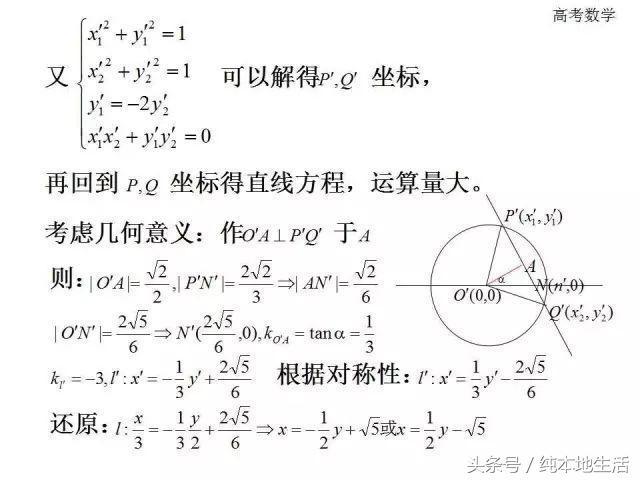 高考数学
又 { x₁′² + y₁′² = 1
x₂′² + y₂′² = 1
y₁′ = −2y₂′
x₁′x₂′ + y₁′y₂′ = 0
可以解得P′,Q′ 坐标，
再回到 P,Q 坐标得直线方程，运算量大。
考虑几何意义：作O′A⊥P′Q′ 于A
则：|O′A|=√2/2,|P′N′|=2√2/3⇒|AN′|=√2/6
|O′N′|=2√5/6⇒N′(2√5/6,0),k_{O′A}=tanα=1/3
k_{l′}=−3,l′:x′=−1/3 y′+2√5/6 根据对称性：l′:x′=1/3 y′−2√5/6
还原：l:x/3=−1/3 y/2+2√5/6⇒x=−1/2 y+√5或x=1/2 y−√5
P′(x₁′,y₁′)
A
α
N(n′,0)
O′(0,0)
Q′(x₂′,y₂′)
头条号／纯本地生活